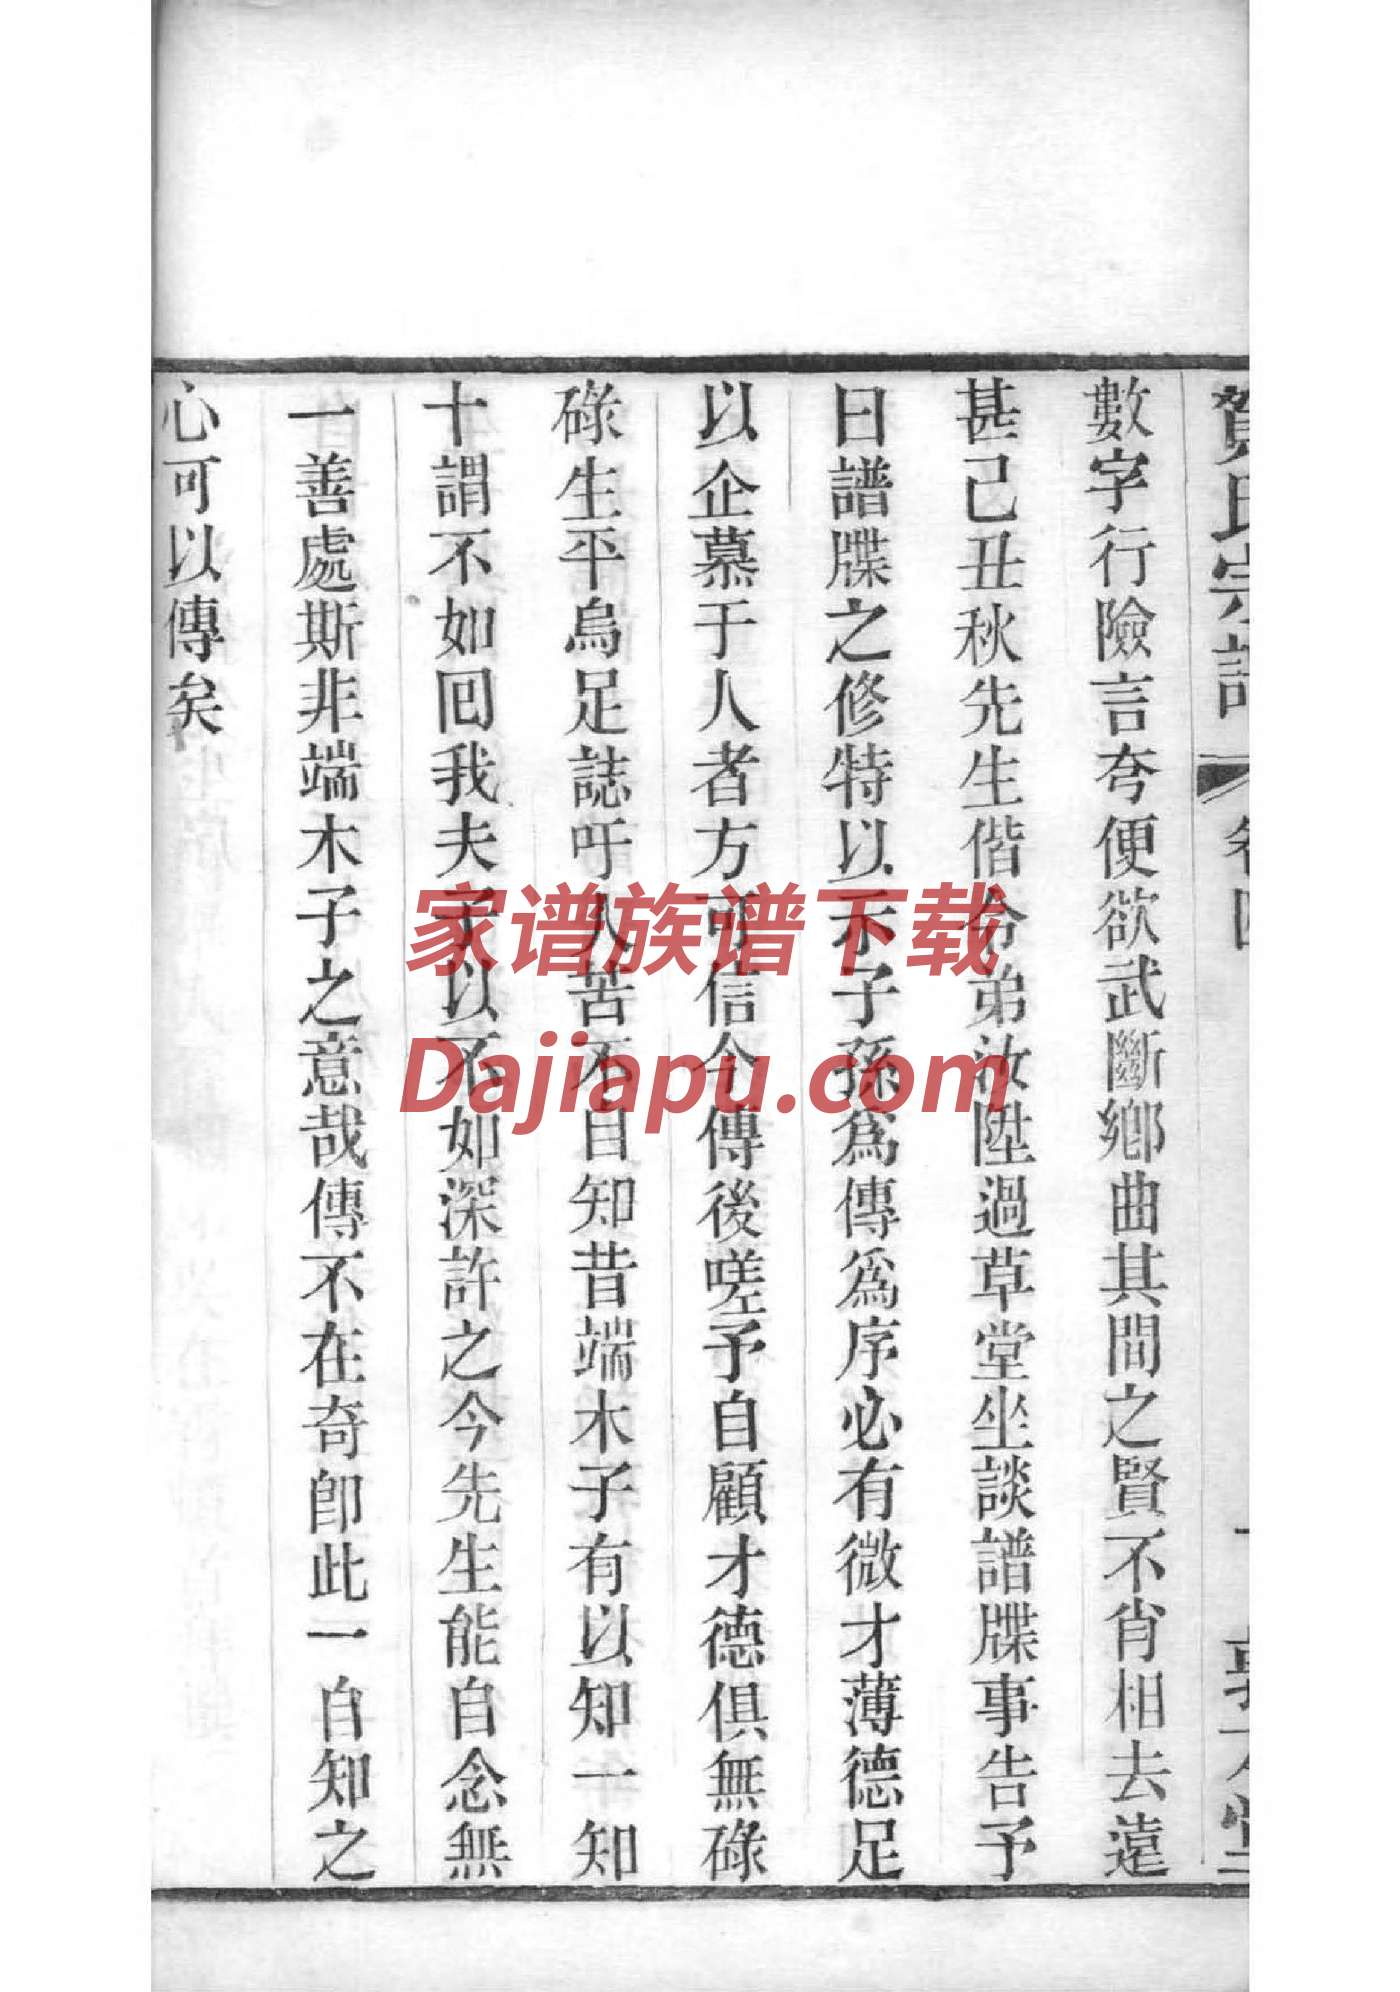 賀氏宗譜 卷四
數字行險言夸便欲武斷鄉曲其間之賢不肖相去遠
甚己丑秋先生偕令弟汝陞過草堂坐談譜牒事告予
曰譜牒之修特以示子孫爲傳爲序必有微才薄德足
以企慕于人者方可信今傳後嗟予自顧才德俱無碌
碌生平烏足誌吁人苦不自知昔端木子有以知一知
十謂不如回我夫子以不如深許之今先生能自念無
一善處斯非端木子之意哉傳不在奇卽此一自知之
心可以傳矣
家谱族谱下载
Dajiapu.com